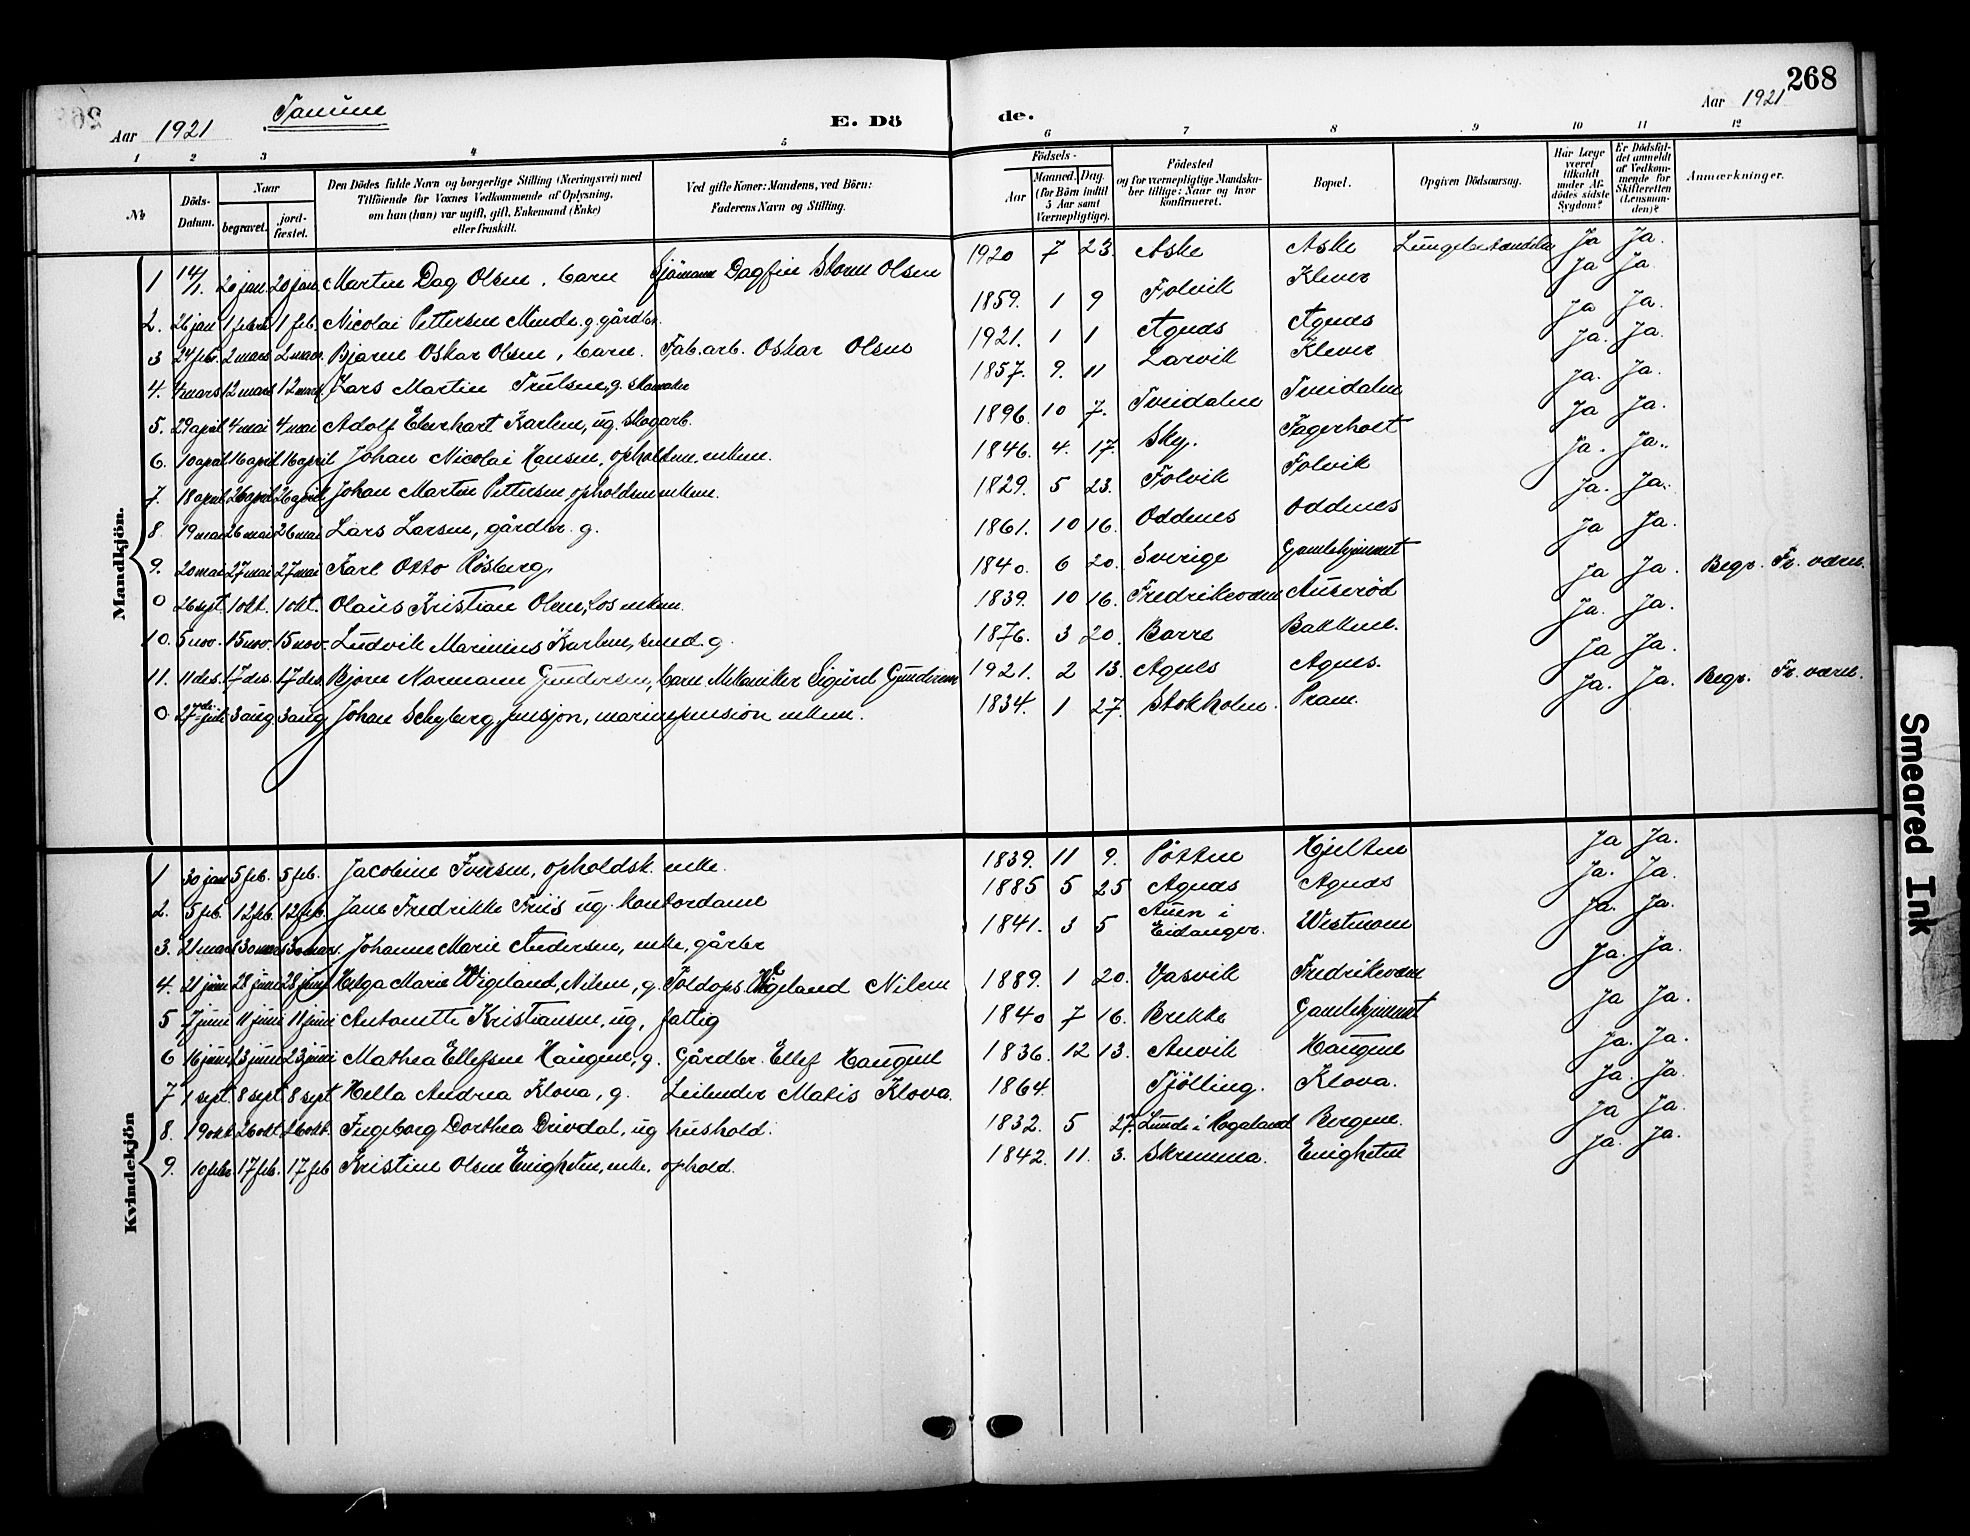 268
Aar 1921 Tanum E. Dö de. Aar 1921
1 2 3 4 5 6 7 8 9 10 11 12
№
Döds-Datum.
Naar
begravet.
jord-fæstet.
Den Dödes fulde Navn og borgerlige Stilling (Næringsvei) med
Tilföiende for Voxnes Vedkommende af Oplysning,
om han (hun) var ugift, gift, Enkemand (Enke)
eller fraskilt.
Ved gifte Koner: Mandens, ved Börn:
Faderens Navn og Stilling.
Födsels-
Aar
Maaned. Dag.
(for Börn indtil
5 Aar samt
Værnepligtige).
Födested
og for værnepligtige Mandska-
ber tillige: Naar og hvor
konfirmeret.
Bopæl.
Opgiven Dödsaarsag.
Har Læge
været
tilkaldt
under Af-
dödes sidste
Sygdom?
Er Dödsfal-
det anmeldt
af Vedkom-
mende for
Skifteretten
(Lensman-
den)?
Anmærkninger.
Mandkjön.
1 14/1. 20 jan 20 jan Martin Dag Olsen, barn Sjömann Dagfin Storm Olsen 1920 7 23. Aske Aske Ja Ja.
2. 26 jan 1 feb 1 feb. Nicolai Pettersen Minde. g. gårdbr. 1859. 1 9 Folvik Klever Ja Ja.
3 24 feb. 2 mars 2 mars Bjarne Oskar Olsen, barn. Fab.arb. Oskar Olsen 1921. 1 1 Agnes Agnes Ja Ja.
4. 4 mars 12 mars 12 mars Lars Martin Trulsen, g. skomaker 1857. 9. 11 Larvik Klever Ja. Ja.
5. 29 april 4 mai 4 mai Adolf Eberhart Karlsen, ug. skogarb. 1896. 10 7. Tveidalen Tveidalen Ja. Ja.
6. 10 april 16 april 16 april Johan Nicolai Hansen, opholdsm. enkem. 1846. 4. 17. Sky. Fagerholt Ja Ja.
7. 18 april 26 april 26 april Johan Martin Pettersen opholdsm enkem. 1829. 5 23. Folvik Folvik Ja. Ja.
8. 19 mai 26 mai 26 mai Lars Larsen, gårdbr. g. 1861. 10 16. Oddenes Oddenes Ja. Ja.
9. 20 mai 27 mai 27 mai Karl Otto Rösberg, 1840. 6 20. Sverige Gamlehjemmet Ja Ja.
0 26 sept. 1 okt. 1 okt. Olaus Kristian Olsen, Los enkem. 1839. 10 16. Fredriksvern Auserød Ja Ja. Begr. Fr. værn.
10. 5 nov. 15 nov. 15 nov. Ludvik Marinius Karlsen, smed. g. 1876. 3 20. Borre Bakkene. Ja. Ja.
11. 11 des. 17 des. 17 des. Bjørn Normann Gundersen, barn Mekaniker Sigurd Gundersen 1921. 2 13. Agnes Agnes. Ja Ja.
0. 27 juli 3 aug 3 aug Johan Schyberg, pensjon, marinepension enkem. 1834. 1 27. Stokholm. Pram. Ja. Ja. Begr. Fr. værn.
Kvindekjön
1 30 jan 5 feb. 5 feb. Jacobine Iversen, opholdsk. enke. 1839. 11 9. Pøtten Hjelten Ja Ja.
2. 5 feb. 12 feb. 12 feb. Jane Fredrikke Friis ug. kontordame 1885 5 25 Agnes Agnes Ja. Ja.
3. 21 mars 30 mars 30 mars. Johanne Marie Andersen, enke, gårdbr 1841. 3 5 Auen i Eidanger. Westnom Ja. Ja.
4. 21 juni 28 juni 28 juni Helga Marie Wigeland, Nilsen, g. Toldops. Wigeland Nilsen 1889. 1 20. Vasvik Fredriksvern Ja. Ja.
5 7 juni 11 juni 11 juni Antonette Kristiansen, ug, fattig 1840 7 16. Brekke Gamlehjemmet Ja Ja.
6 16 juni 23 juni 23 juni Mathea Ellefsen Haugene, g. Gårdbr. Ellef Haugene 1836. 12 13. Anvik Haugene Ja. Ja.
7 1 sept. 8 sept 8 sept Hella Andrea Klova, g. Leilender Matis Klova. 1864. Tjölling. Klova. Ja. Ja.
8. 19 okt. 26 okt 26 okt. Ingeborg Dorthea Drivdal, ug hushold. 1832. 5 27. Lunde i Rogaland Bergene. Ja Ja.
9. 10 febr 17 feb. 17 feb Kristine Olsen Enigheten, enke. ophold. 1842. 11. 3. Skrenna. Enigheten Ja. Ja.
Smeared Ink